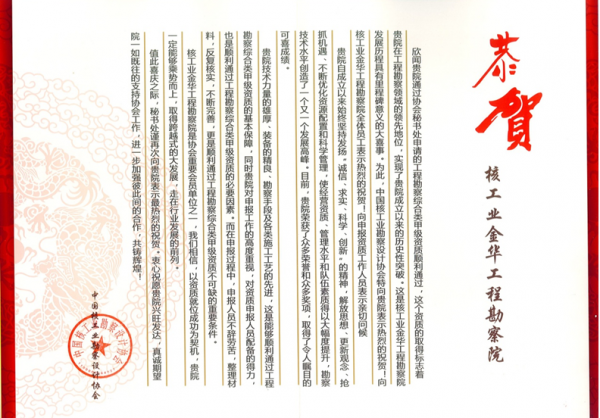 恭贺
核工业金华工程勘察院
欣闻贵院通过协会秘书处申请的工程勘察综合类甲级资质顺利通过，这个资质的取得标志着
贵院在工程勘察领域的领先地位，实现了贵院成立以来的历史性突破。这是核工业金华工程勘察院
发展历程具有里程碑意义的大喜事。为此，中国核工业勘察设计协会特向贵院表示热烈的祝贺！向
核工业金华工程勘察院全体员工表示热烈的祝贺！向申报资质工作人员表示亲切问候
贵院自成立以来始终坚持发扬“诚信、求实、科学、创新”的精神，解放思想、更新观念、抢
抓机遇、不断优化资源配置和科学管理，使经营资质、管理水平和队伍素质得以大幅度提升，勘察
技术水平创造了一个又一个发展高峰。目前，贵院荣获了众多荣誉和众多奖项，取得了令人瞩目的
可喜成绩。
贵院技术力量的雄厚、装备的精良、勘察手段及各类施工工艺的先进，这是能够顺利通过工程
勘察综合类甲级资质的基本保障，同时贵院对申报工作的高度重视，对资质申报人员配备的得力，
也是顺利通过工程勘察综合类甲级资质的必要因素。而在申报过程中，申报人员不辞劳苦，整理材
料，反复核实，不断完善，更是顺利通过工程勘察综合类甲级资质不可缺的重要条件。
核工业金华工程勘察院是协会重要会员单位之一，我们相信，以资质就位成功为契机，贵院
一定能够乘势而上，取得跨越式的大发展，走在行业发展的前列。
值此喜庆之际，秘书处谨再次向贵院表示最热烈的祝贺。衷心祝愿贵院兴旺发达，真诚期望
院一如既往的支持协会工作，进一步加强彼此间的合作，共铸辉煌！
中国核工业勘察设计协会
中国核工业勘察设计协会